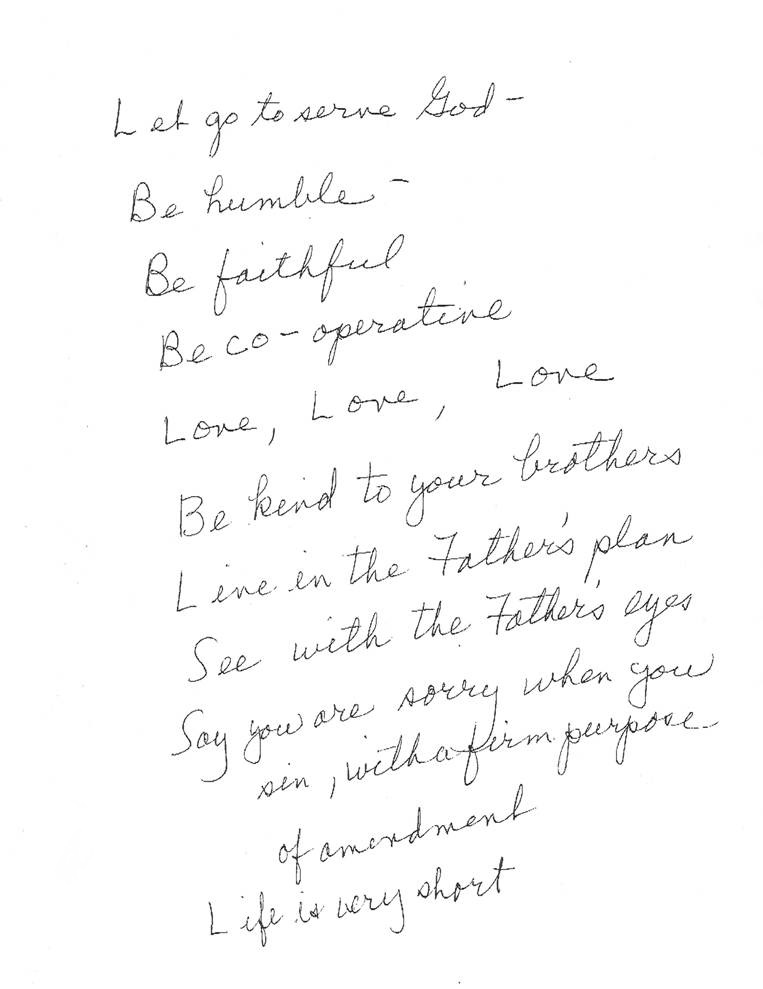 Let go to serve God -
Be humble -
Be faithful
Be co-operative
Love, Love, Love
Be kind to your brothers
Live in the Father's plan
See with the Father's eyes
Say you are sorry when you
sin, with a firm purpose
of amendment
Life is very short